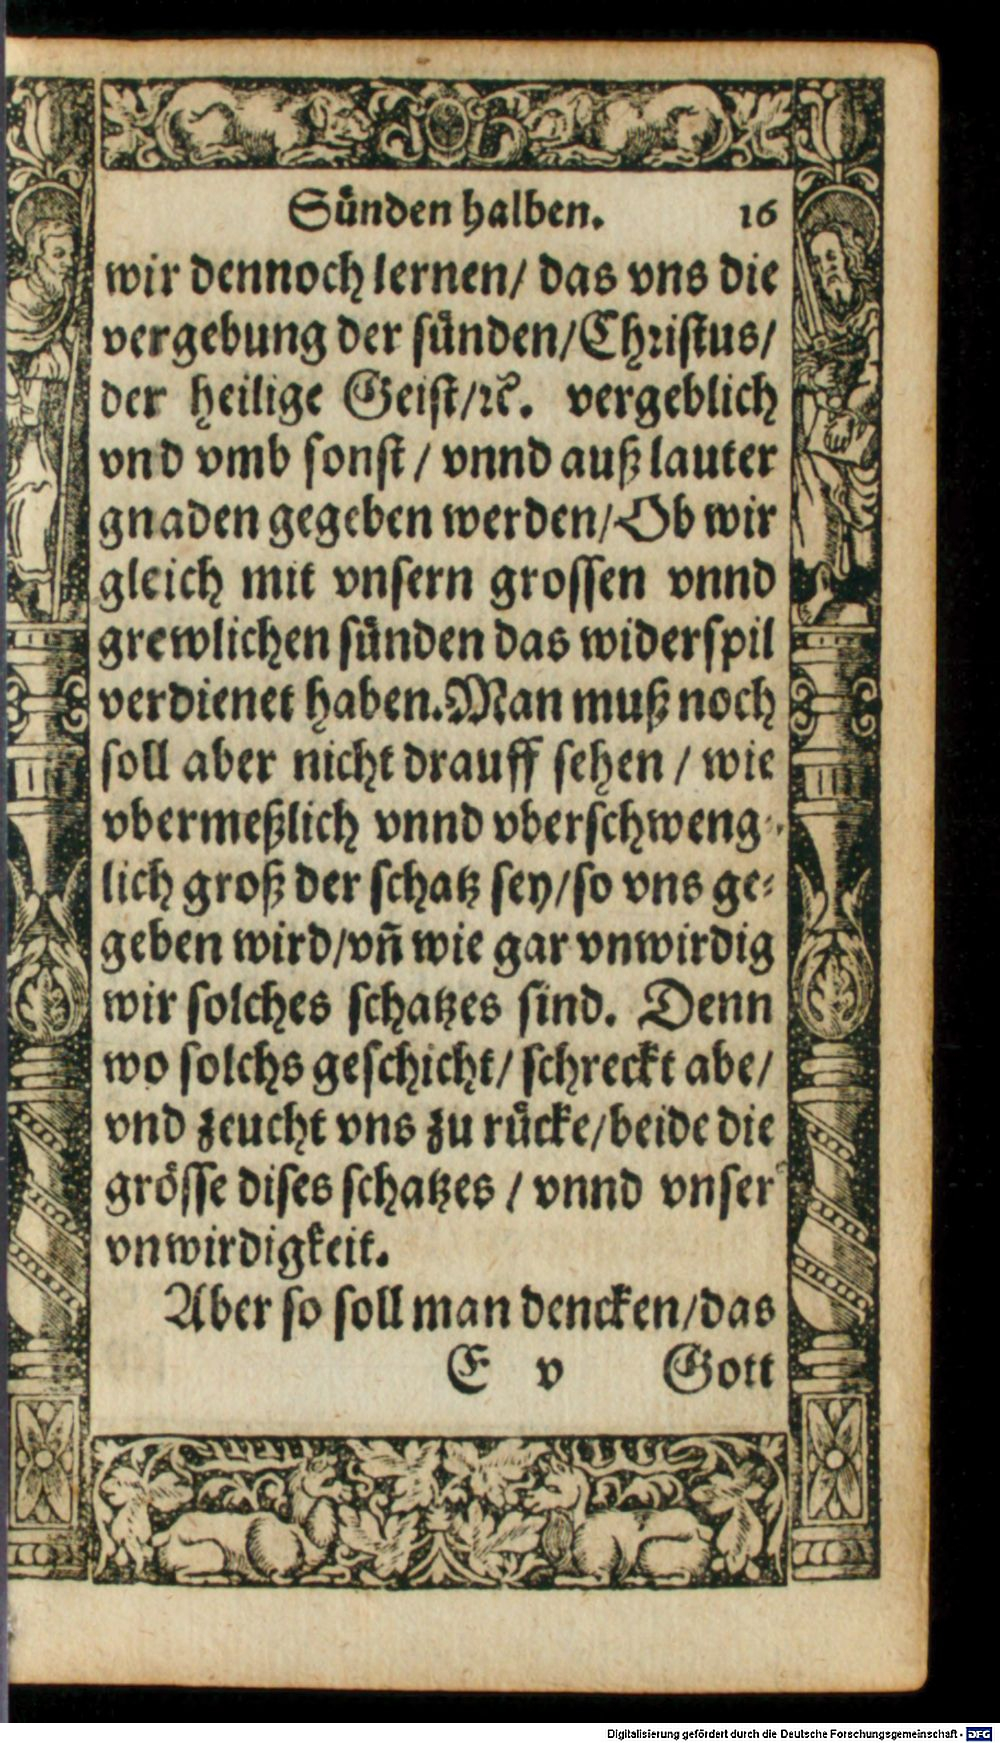 Sünden halben. 16
wir dennoch lernen/ das vns die
vergebung der sünden/Christus/
der heilige Geist/ꝛc̄. vergeblich
vnd vmb sonst / vnnd auß lauter
gnaden gegeben werden/Ob wir
gleich mit vnsern grossen vnnd
grewlichen sünden das widerspil
verdienet haben.Man muß noch
soll aber nicht drauff sehen / wie
vbermeßlich vnnd vberschweng⸗
lich groß der schatz sey/so vns ge⸗
geben wird/vñ wie gar vnwirdig
wir solches schatzes sind. Denn
wo solchs geschicht/ schreckt abe/
vnd zeucht vns zu rücke/beide die
grösse dises schatzes / vnnd vnser
vnwirdigkeit.
Aber so soll man dencken/das
E v Gott
Digitalisierung gefördert durch die Deutsche Forschungsgemeinschaft - DFG